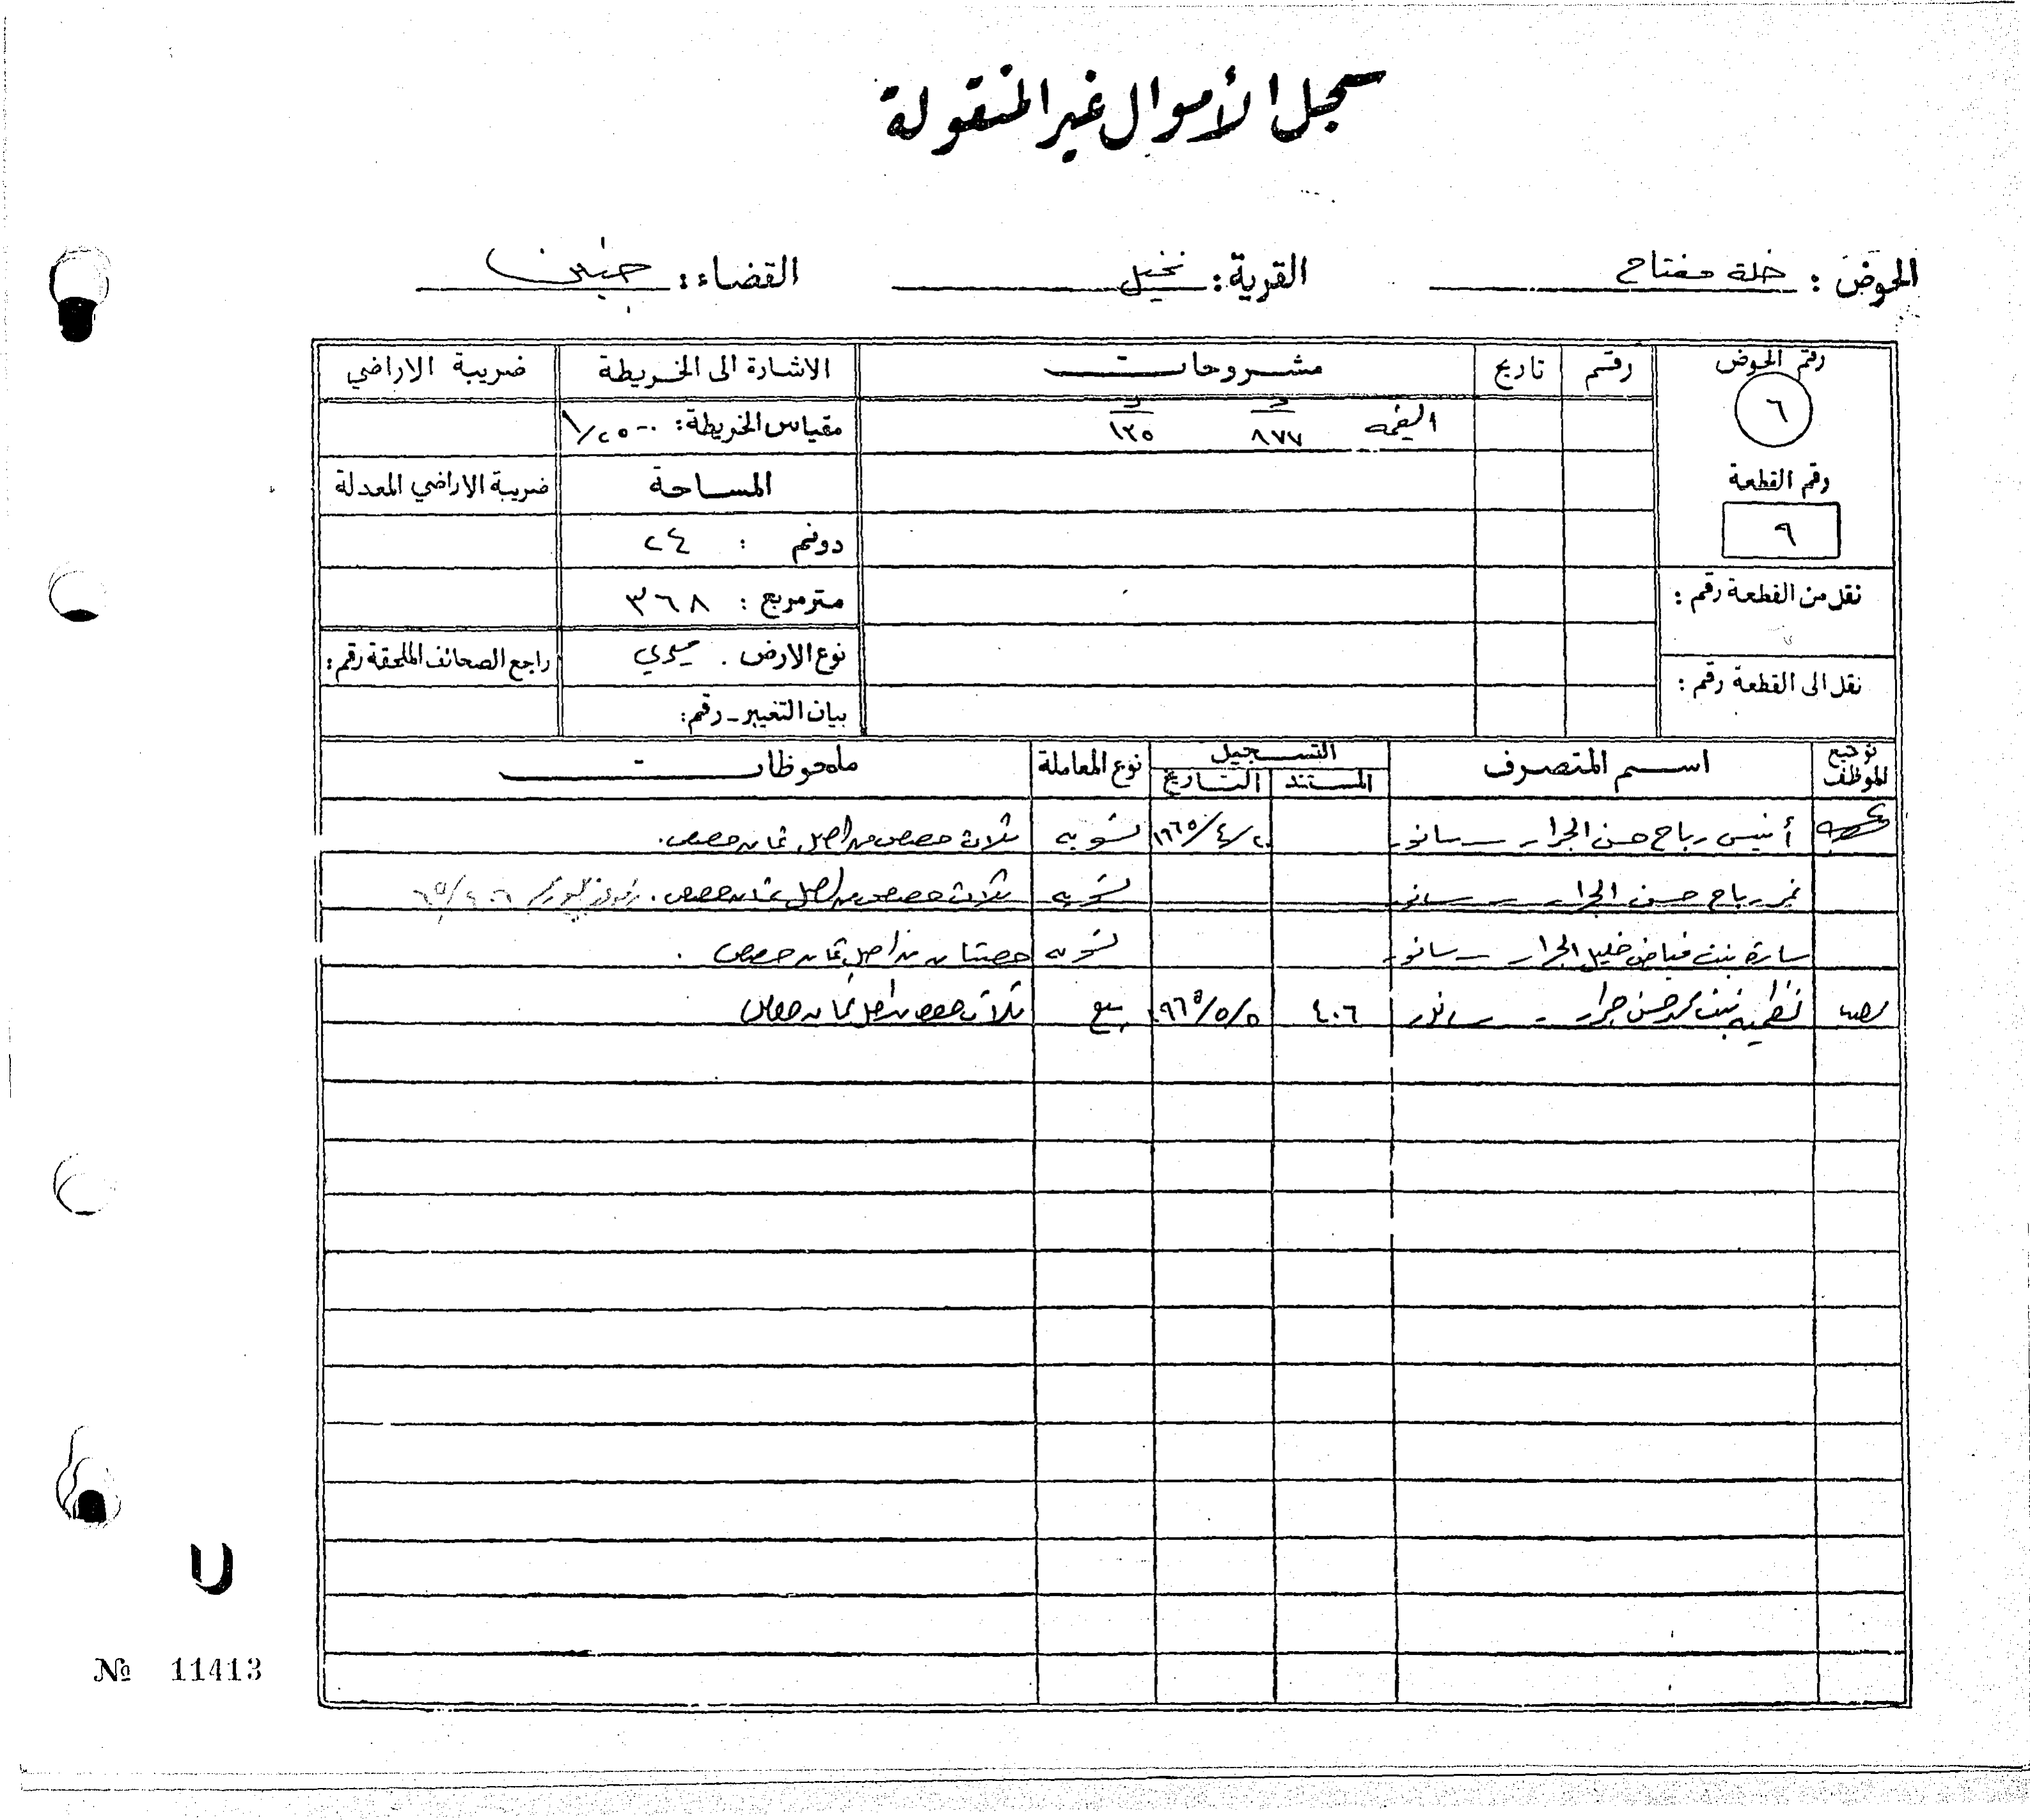 سجل الأموال غير المنقولة
الحوض : خلة مفتاح القرية : نخيل القضاء : جنين
رقم الحوض رقم تاريخ مشروحات الاشارة الى الخريطة ضريبة الاراضي
٦ القيمة د ٨٧٧ د ١٣٥ مقياس الخريطة : ١/٢٥٠٠
رقم القطعة المساحة ضريبة الاراضي المعدلة
٩ دونم : ٢٤
نقل من القطعة رقم : متر مربع : ٣٦٨
نوع الارض . ميري راجع الصحائف الملحقة رقم :
نقل الى القطعة رقم :
بيان التغيير - رقم :
توقيع الموظف اسم المتصرف التسجيل نوع المعاملة ملحوظات
المستند التاريخ
أنيس رباح حسن الجرار - سانور ١٩٦٥/٤/٢٠ تسوية ثلاث حصص من اصل ثمان حصص .
نمر رباح حسن الجرار - سانور تسوية ثلاث حصص من اصل ثمان حصص .
سارة بنت فياض خليل الجرار - سانور تسوية حصتان من اصل ثمان حصص .
نظميه بنت حسن جرار - سانور ٤٠٦ ٩٦٥/٥/٥ بيع ثلاث حصص من اصل ثمان حصص
№ 11413